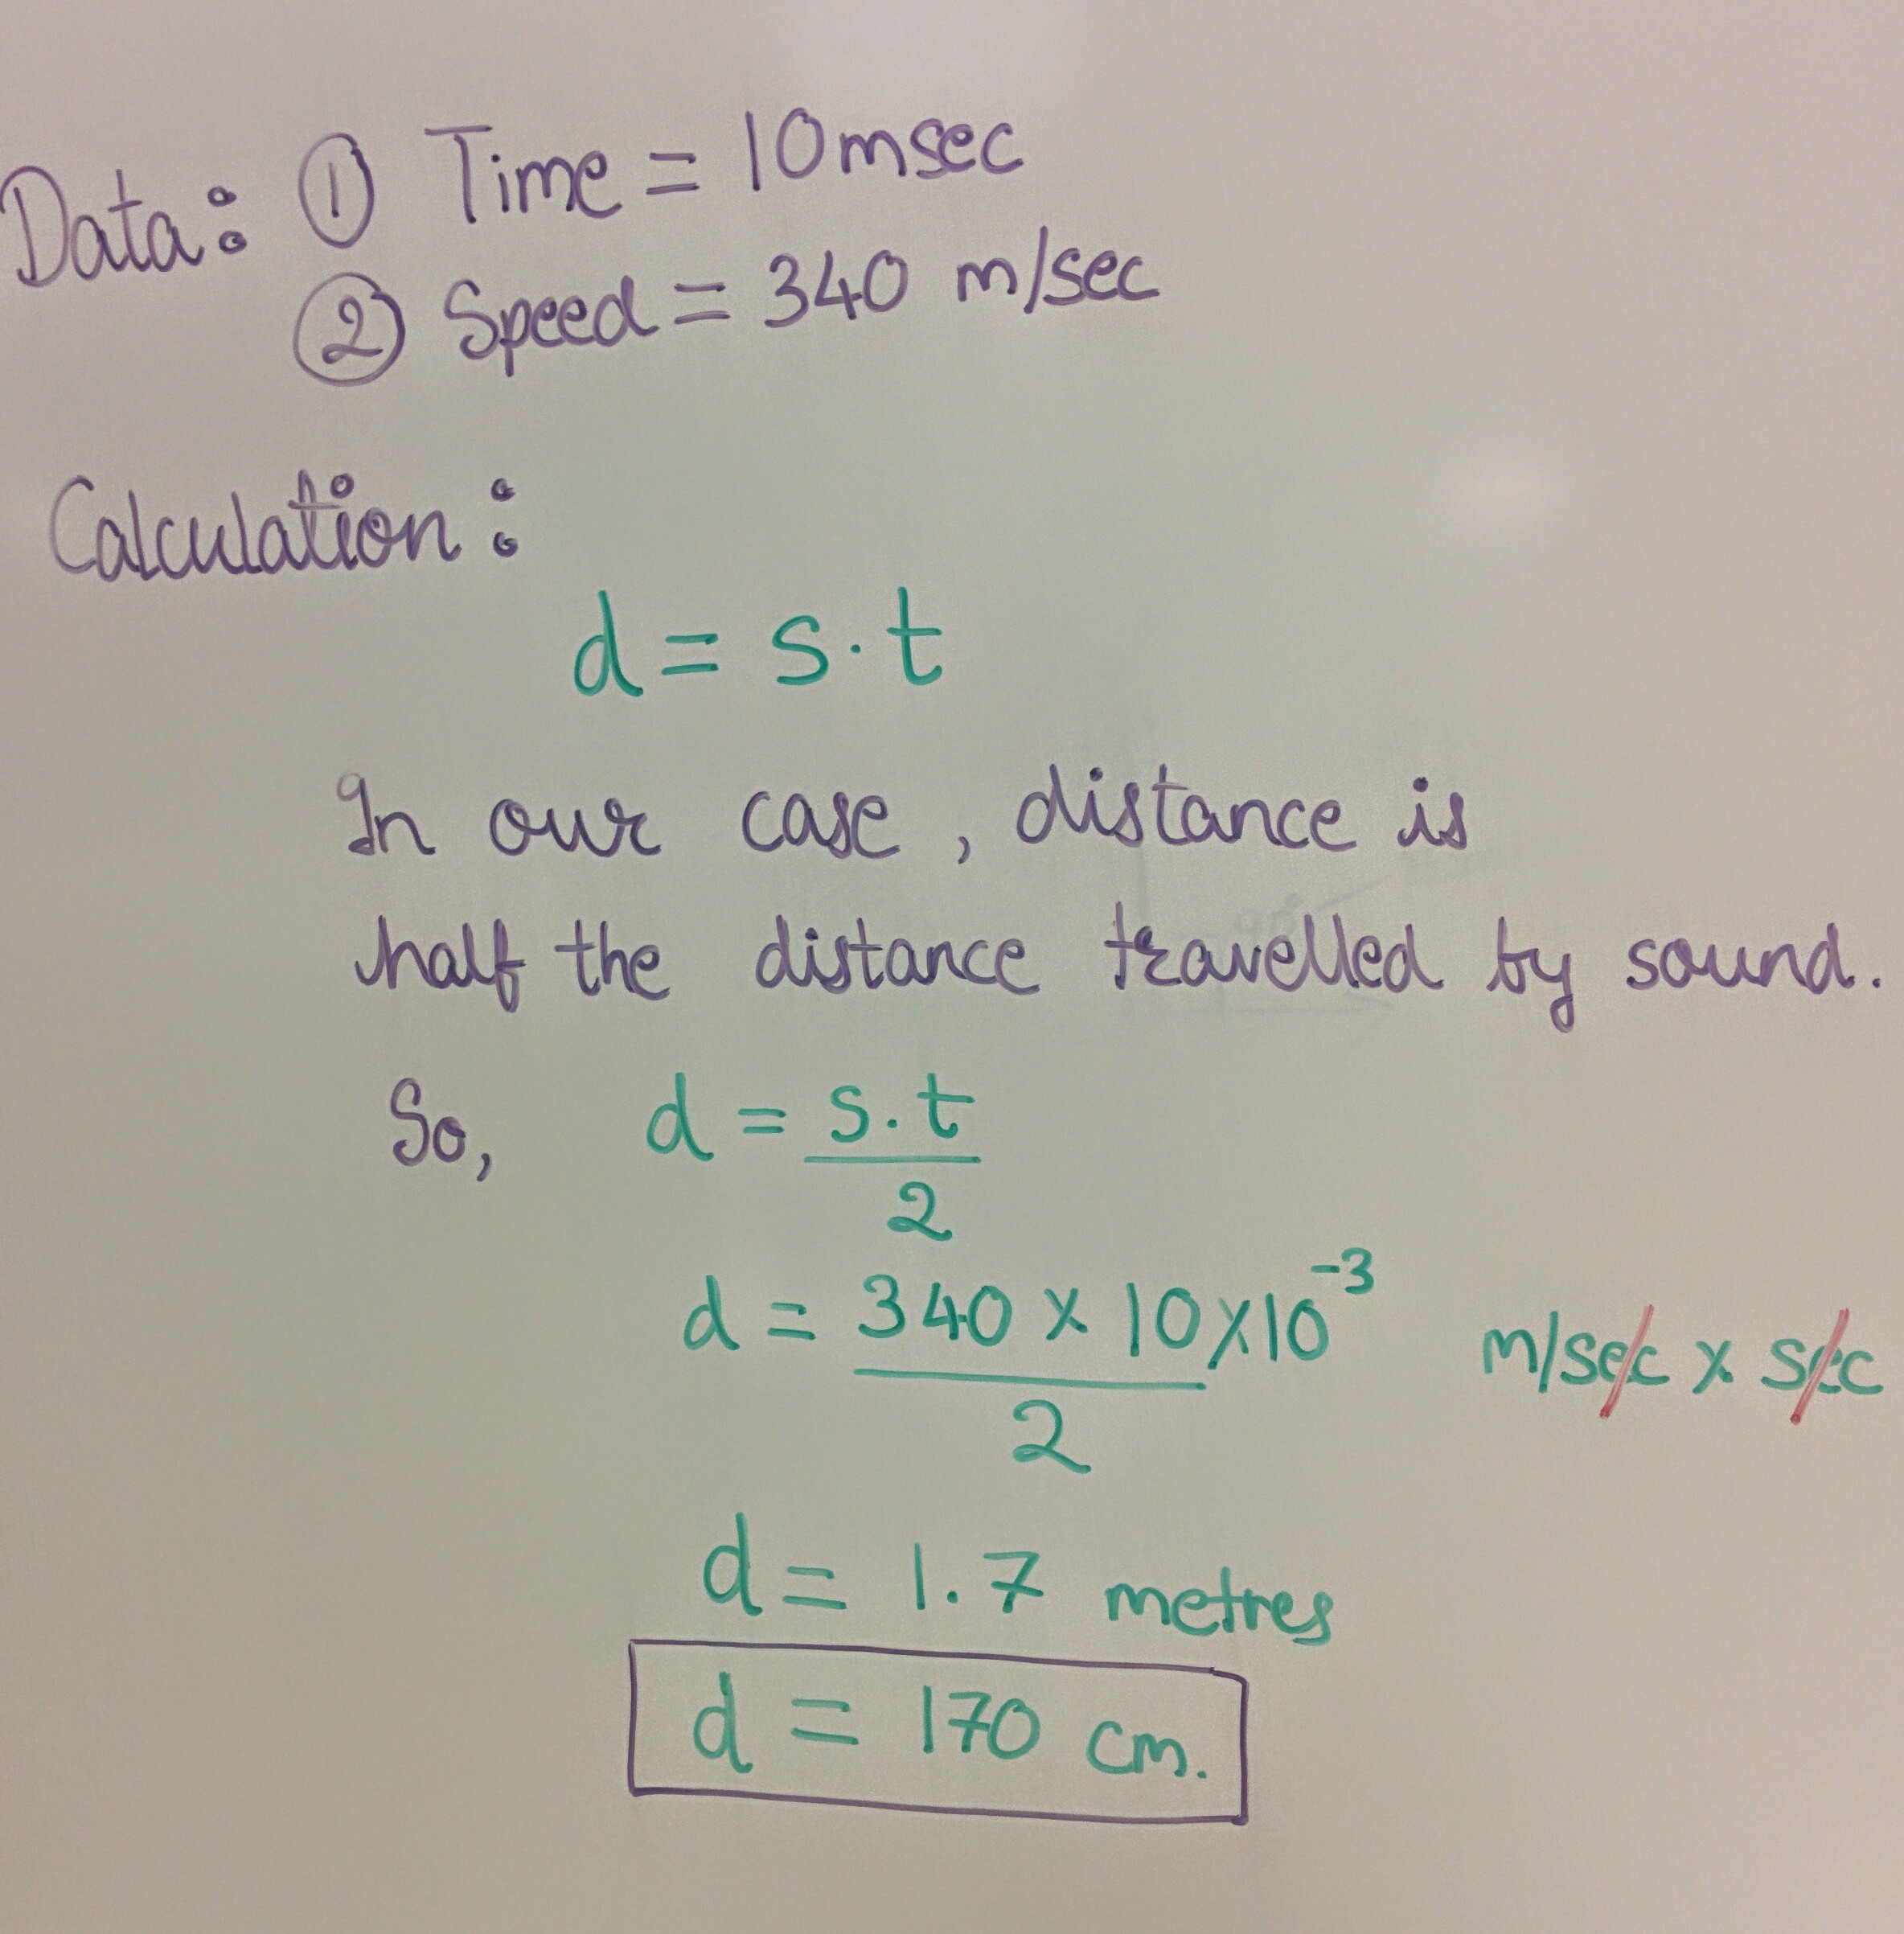 Data: ① Time = 10msec
② Speed = 340 m/sec
Calculation:
d = s.t
In our case, distance is
half the distance travelled by sound.
So, d = s.t
2
d = 340 x 10x10⁻³ m/sec x sec
2
d = 1.7 metres
d = 170 cm.